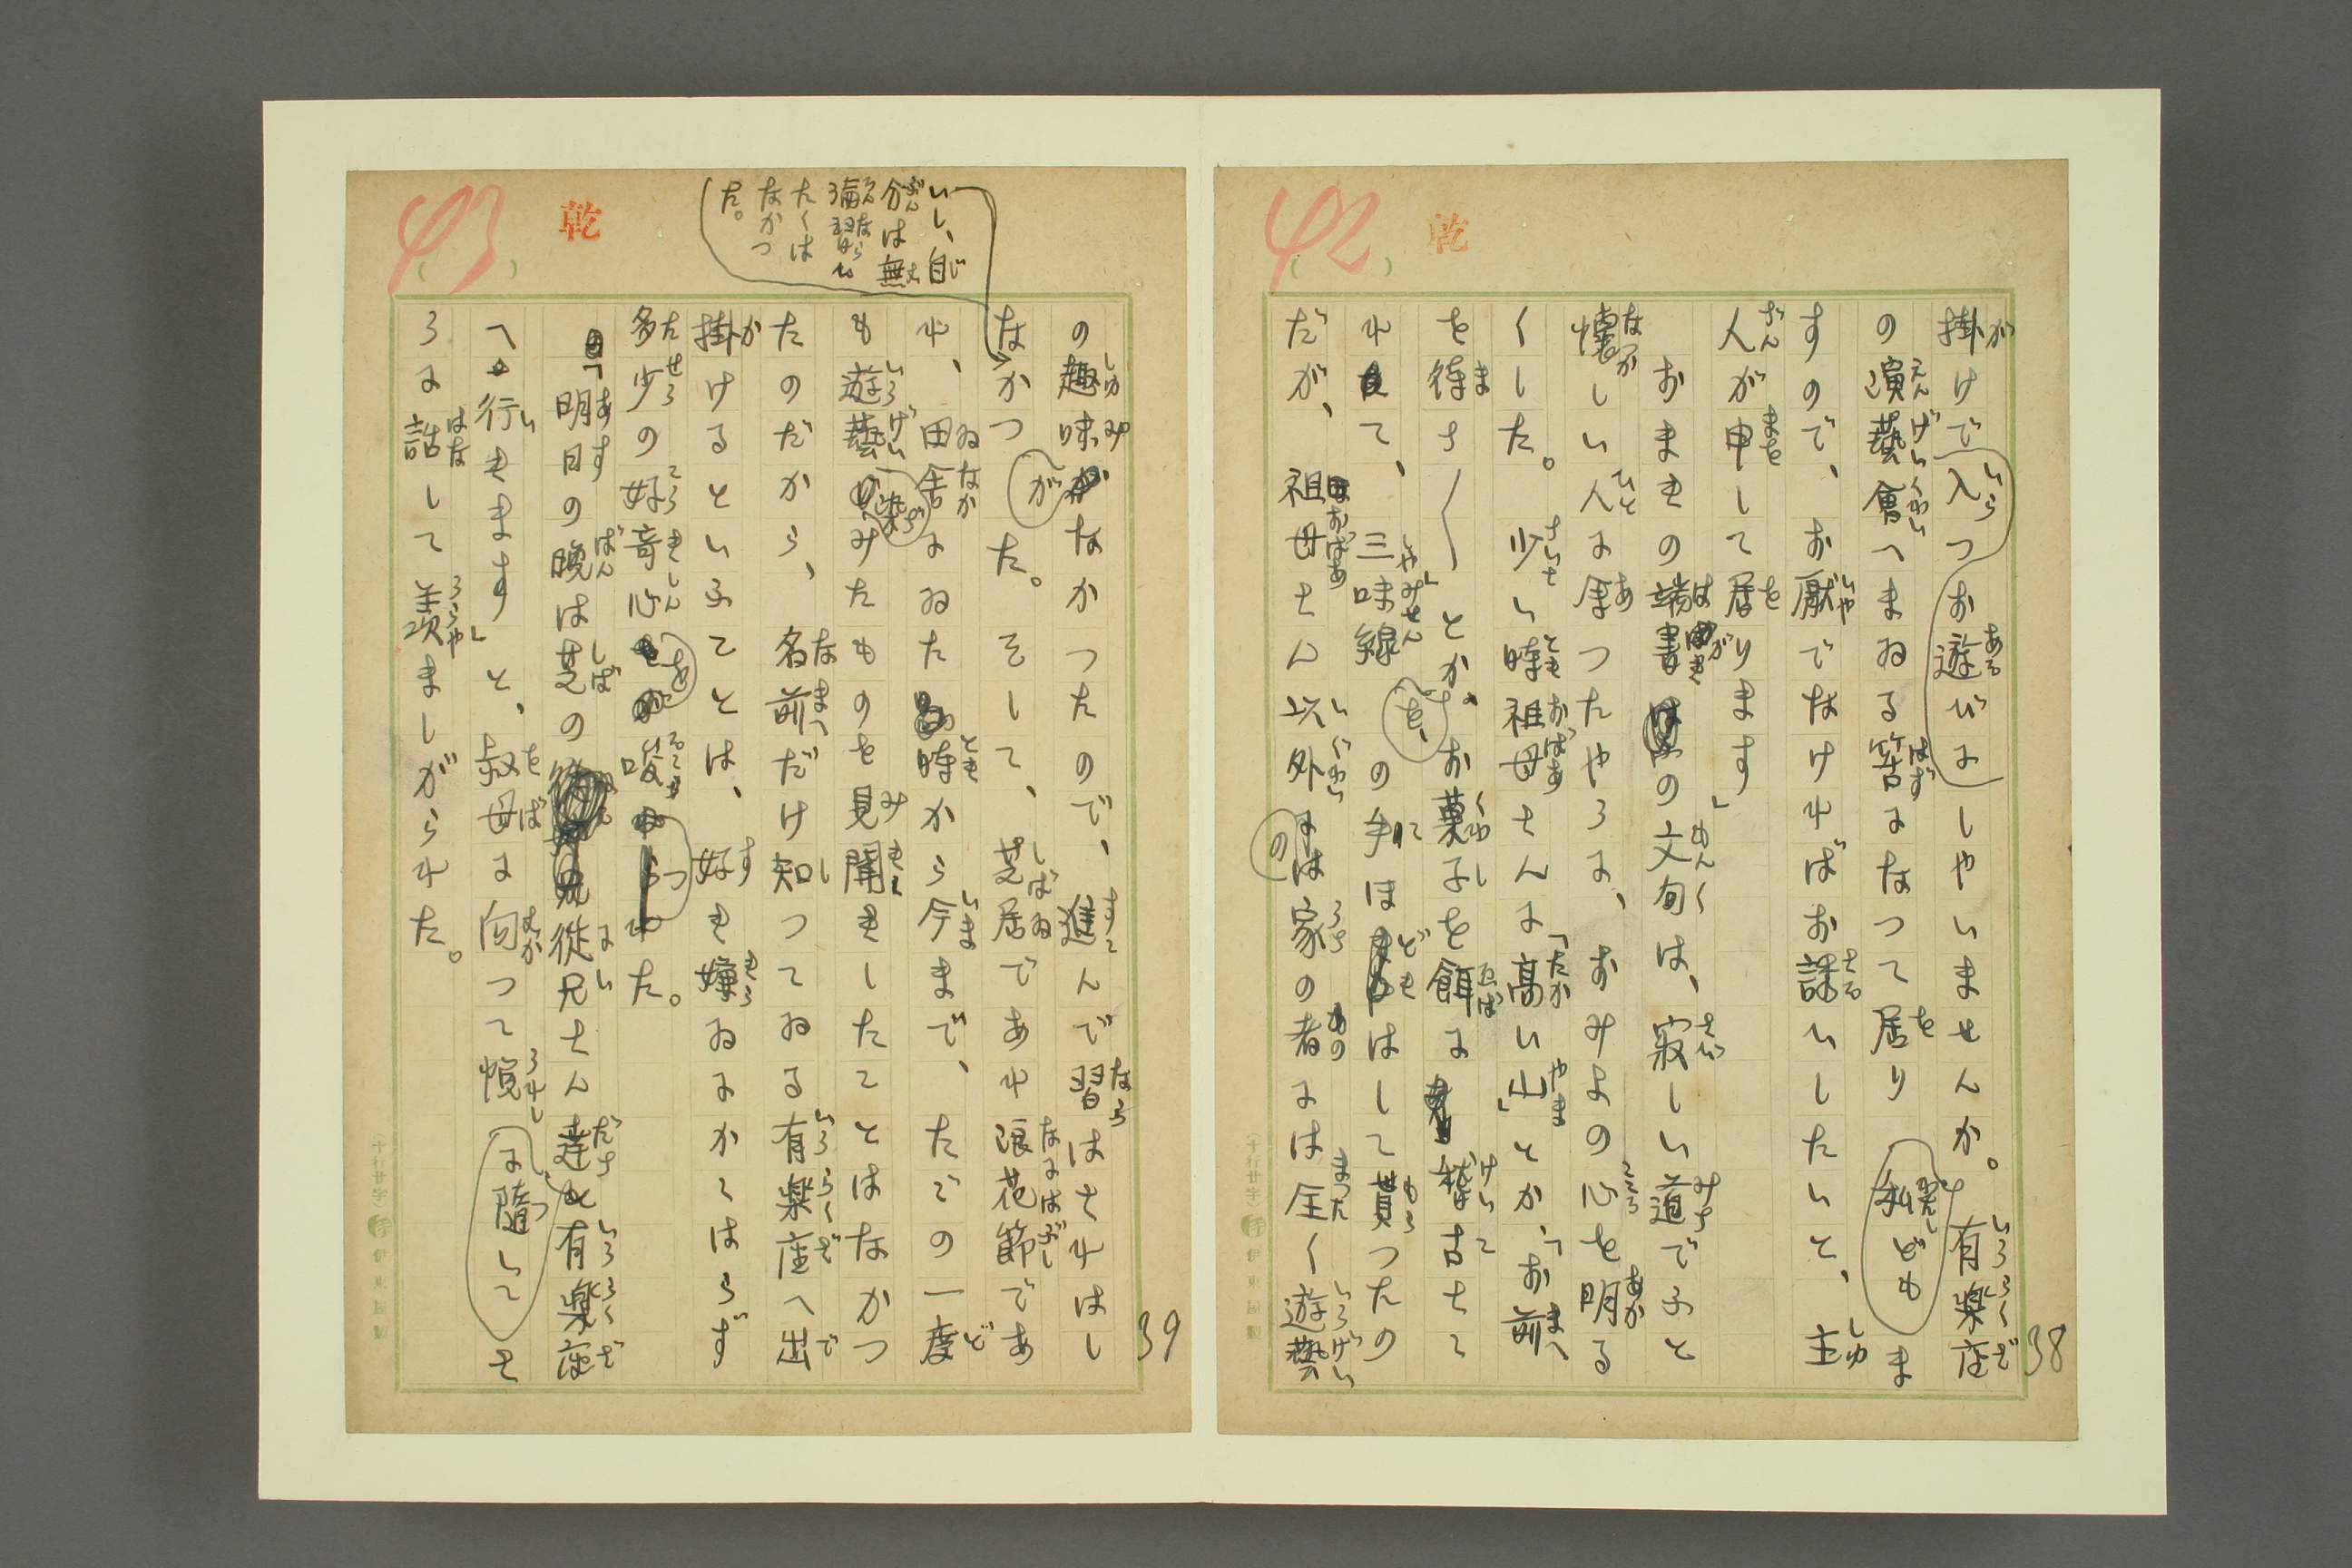 38
42
乾
掛けで入つお遊びにしやいませんか。有楽座
の演藝會へまゐる筈になつて居り私どもま
すので、お厭でなければお誘いしたいと、主
人が申して居ります」
おまきの端書の文句は、寂しい道で ふと
懐しい人に会つたやうに、おみよの心を明る
くした。少い時祖母さんに「高い山」とか、「お前
を待ち〳〵」とか。お菓子を餌に稽古させ
れて、三味線の手ほどきはして貰つたの
だが、祖母さん以外の家の者には全く遊藝
39
43
乾
いし、自
分は無
論習ら
たくは
なかつ
た。
の趣味がなかつたので、進んで習はされはし
なかつた。そして、芝居であれ浪花節であ
れ、田舎にゐた時から今まで、たゞの一度
も遊藝染みたものを見聞きしたことはなかつ
たのだから、名前だけ知つてゐる有楽座へ出
掛けるといふことは、好き嫌ゐにかゝはらず
多少の好奇心を唆つた。
「明日の晩は芝の従兄さん達と有楽座
へ行きます」と、叔母に向つて愼に隨してさ
うに話して羨ましがられた。